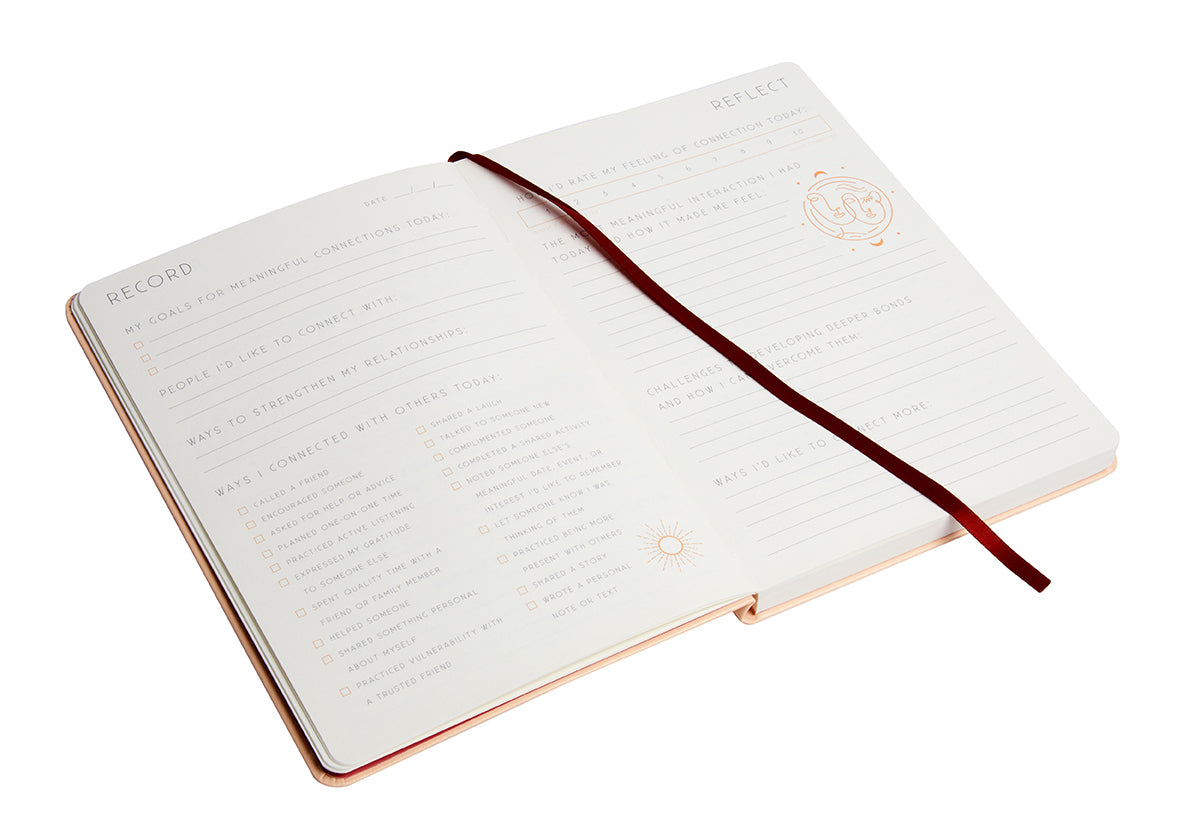 RECORD
DATE __/__/__
MY GOALS FOR MEANINGFUL CONNECTIONS TODAY:
PEOPLE I'D LIKE TO CONNECT WITH:
WAYS TO STRENGTHEN MY RELATIONSHIPS:
WAYS I CONNECTED WITH OTHERS TODAY:
CALLED A FRIEND
ENCOURAGED SOMEONE
ASKED FOR HELP OR ADVICE
PLANNED ONE-ON-ONE TIME
PRACTICED ACTIVE LISTENING
EXPRESSED MY GRATITUDE
TO SOMEONE ELSE
SPENT QUALITY TIME WITH A
FRIEND OR FAMILY MEMBER
HELPED SOMEONE
SHARED SOMETHING PERSONAL
ABOUT MYSELF
PRACTICED VULNERABILITY WITH
A TRUSTED FRIEND
SHARED A LAUGH
TALKED TO SOMEONE NEW
COMPLIMENTED SOMEONE
COMPLETED A SHARED ACTIVITY
NOTED SOMEONE ELSE'S
MEANINGFUL DATE, EVENT, OR
INTEREST I'D LIKE TO REMEMBER
LET SOMEONE KNOW I WAS
THINKING OF THEM
PRACTICED BEING MORE
PRESENT WITH OTHERS
SHARED A STORY
WROTE A PERSONAL
NOTE OR TEXT
REFLECT
I'D RATE MY FEELING OF CONNECTION TODAY:
2 3 4 5 6 7 8 9 10
THE MEANINGFUL INTERACTION I HAD
TODAY HOW IT MADE ME FEEL:
CHALLENGES DEVELOPING DEEPER BONDS
AND HOW I OVERCOME THEM:
WAYS I'D LIKE TO CONNECT MORE: